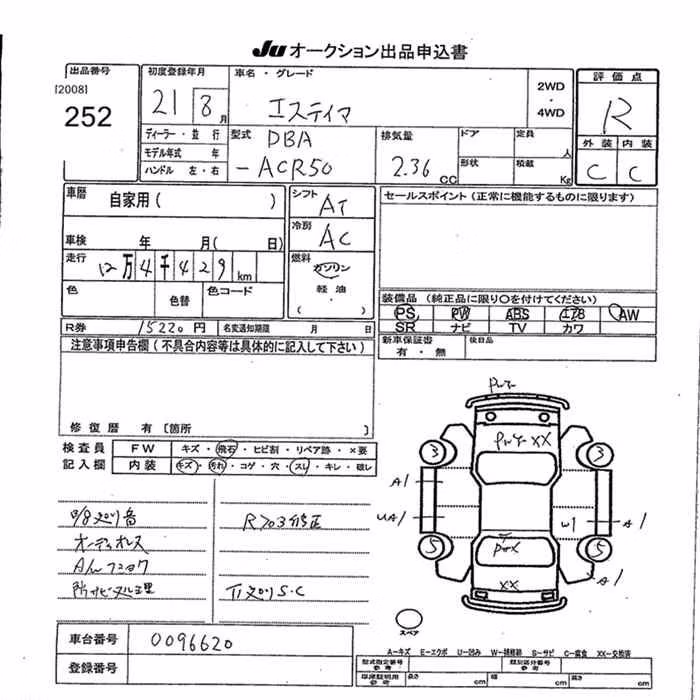 Ju オークション出品申込書
出品番号
[2008]
252
初度登録年月
21 8月
車名・グレード
エスティマ
2WD
・
4WD
評価点
R
外装 内装
C C
ディーラー・並行
モデル年式 年
ハンドル 左・右
型式
DBA
-ACR50
排気量
2.36 CC
ドア
形状
定員
人
積載
Kg
車暦 自家用( )
車検 年 月( 日)
走行 12万4千429km
色 色替 色コード
シフト
AT
冷房
AC
燃料
ガソリン
軽油
( )
セールスポイント(正常に機能するものに限ります)
装備品(純正品に限り○を付けてください)
PS PW ABS エアB AW
SR ナビ TV カワ
新車保証書
有・無
後日品
R券 15220円 名変通知期限 月 日
注意事項申告欄(不具合内容等は具体的に記入して下さい)
修復歴 有〔箇所 〕
検査員
記入欄
FW キズ・飛石・ヒビ割・リペア跡・×要
内装 キズ・汚れ・コゲ・穴・スレ・キレ・破レ
オーディオレス
XX
3 3
A1
UA1
W1 A1
5 5
XX
A1
スペア
車台番号 0096620
登録番号
A−キズ E−エクボ U−凹み W−補修跡 S−サビ C−腐食 XX−交換済
型式指定番号
参考
類別区分番号
参考
車庫証明用
参考
長さ cm 幅 cm 高さ cm